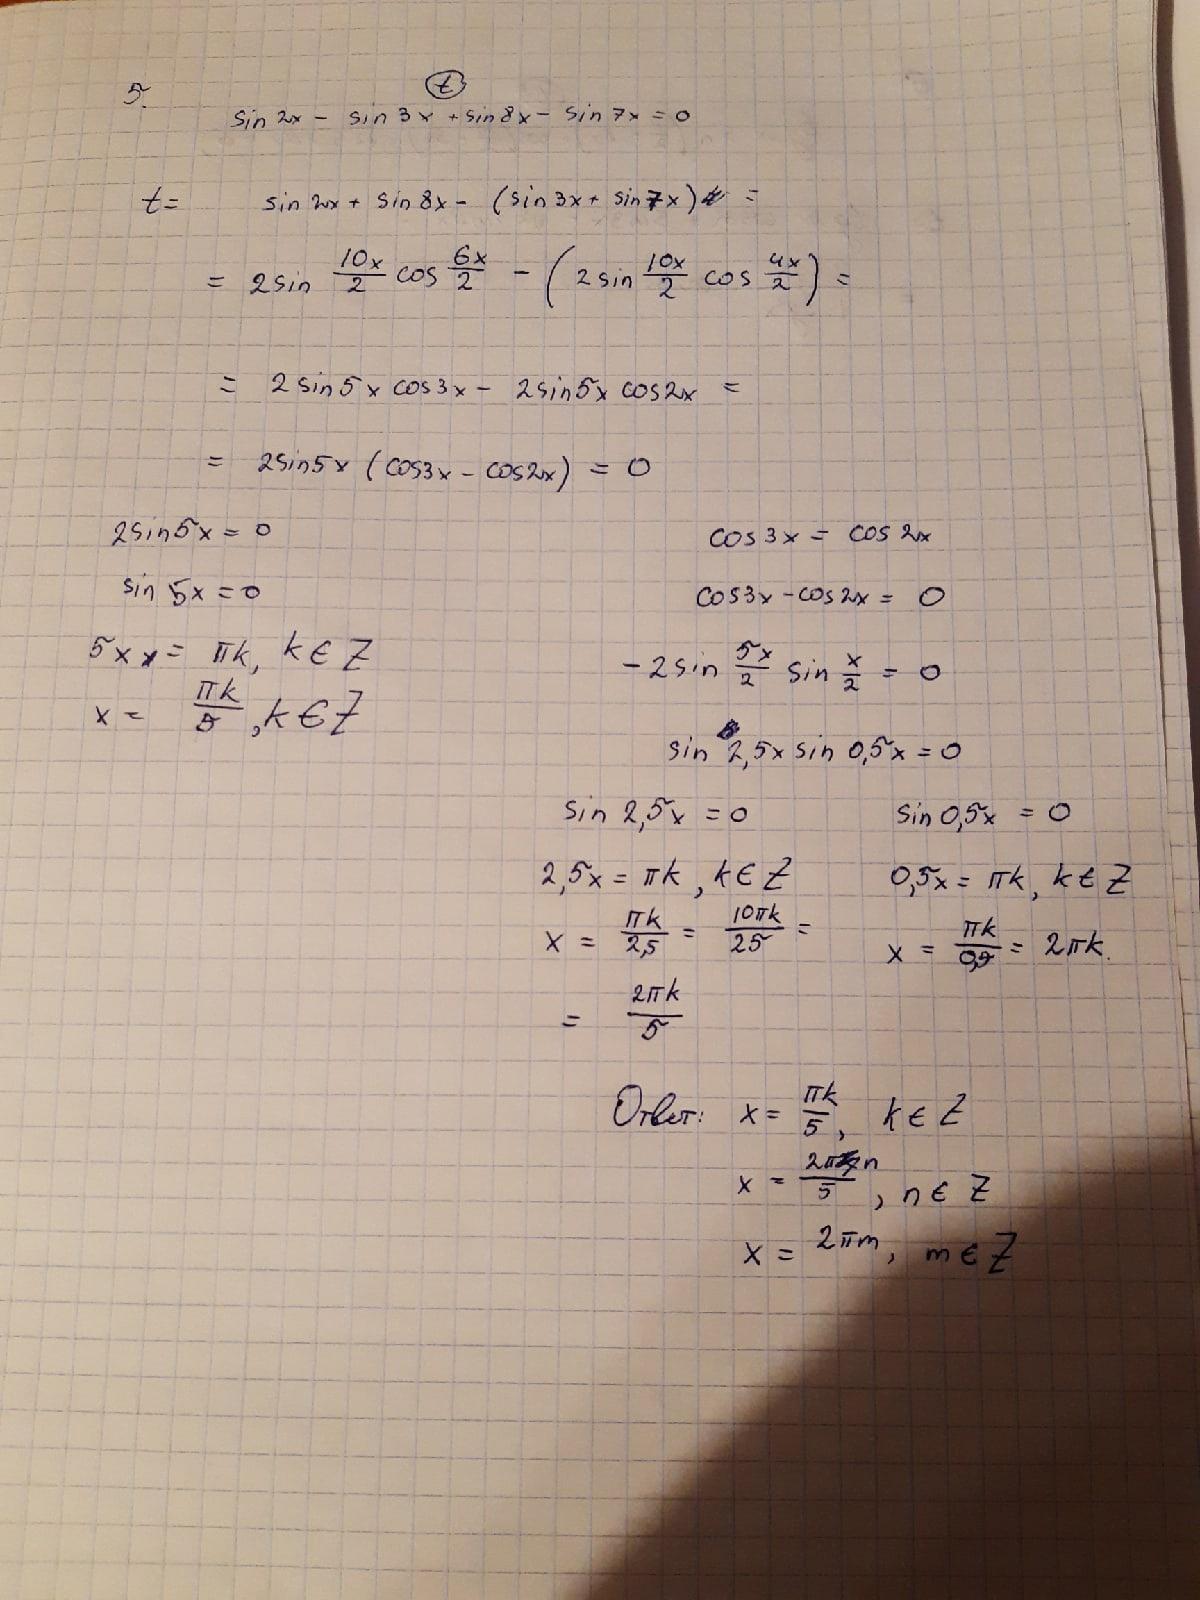 5.
t
sin 2x - sin 3x + sin 8x - sin 7x = 0
t = sin 2x + sin 8x - (sin 3x + sin 7x) =
= 2 sin 10x/2 cos 6x/2 - (2 sin 10x/2 cos 4x/2) =
= 2 sin 5x cos 3x - 2 sin 5x cos 2x =
= 2 sin 5x (cos 3x - cos 2x) = 0
2 sin 5x = 0
sin 5x = 0
5x = πk, k ∈ Z
x = πk/5, k ∈ Z
cos 3x = cos 2x
cos 3x - cos 2x = 0
-2 sin 5x/2 sin x/2 = 0
sin 2,5x sin 0,5x = 0
sin 2,5x = 0
2,5x = πk, k ∈ Z
x = πk/2,5 = 10πk/25 =
= 2πk/5
sin 0,5x = 0
0,5x = πk, k ∈ Z
x = πk/0,5 = 2πk.
Ответ: x = πk/5, k ∈ Z
x = 2πn/5, n ∈ Z
x = 2πm, m ∈ Z